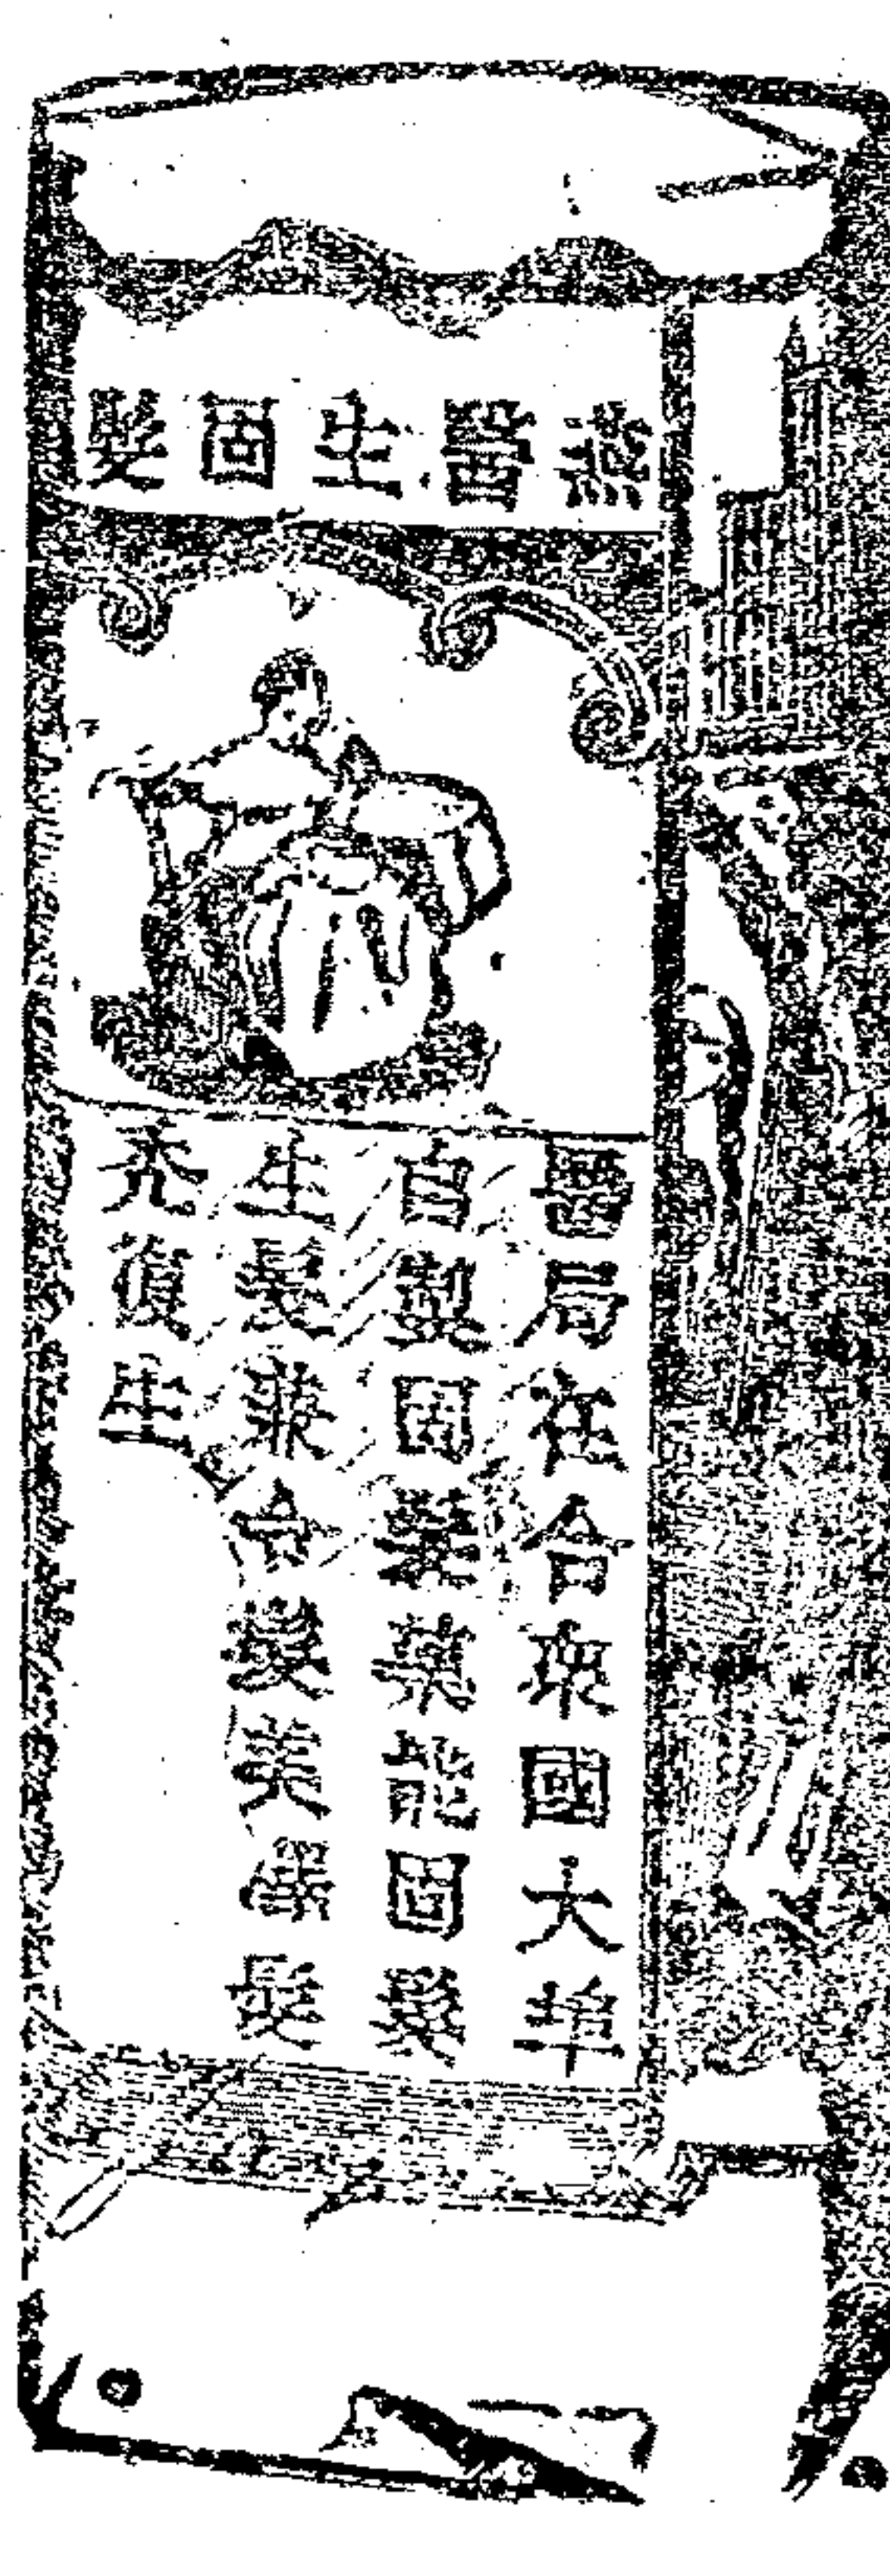 燕醫生固髮
醫局在合衆國大埠
自製固髮藥能固髮
生髮兼令髮美
禿復生